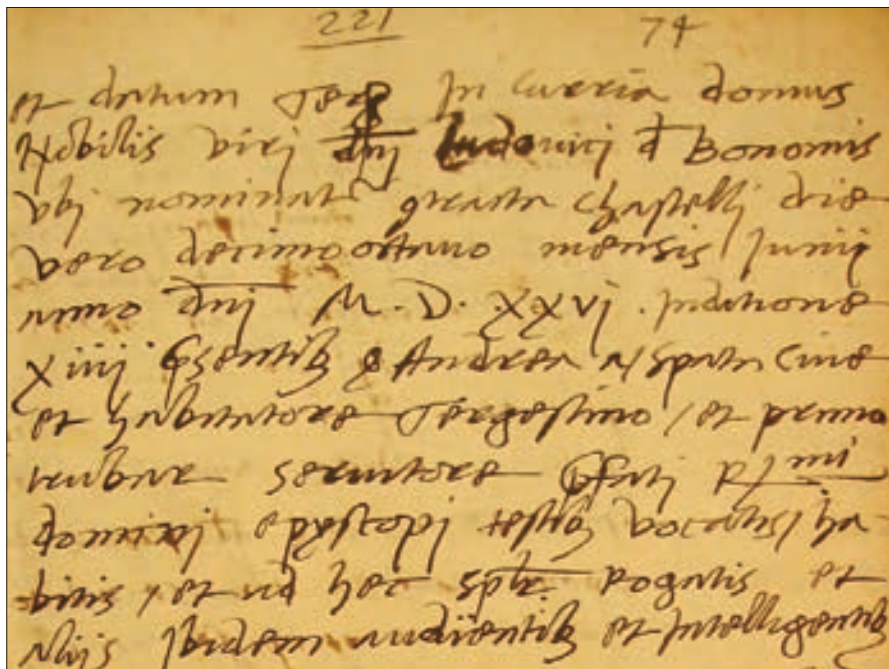 221 74
et datum Terg In Curria domus
Nobilis viri dnj Ludouici d Bonomis
vbj nominat contrata Chastelli die
vero decimooctauo mensis Junij
anno dnj M. D. XXVJ. Inditione
XIIIJ psentib Andrea Spata Ciue
et habitatore Tergestino / et primo
seruitore pfatj R mi
dominj epyscopi testib vocatis / ha
bitis / et ad hec spetr. Rogatis et
Alijs Ibidem audientib et Intelligentib